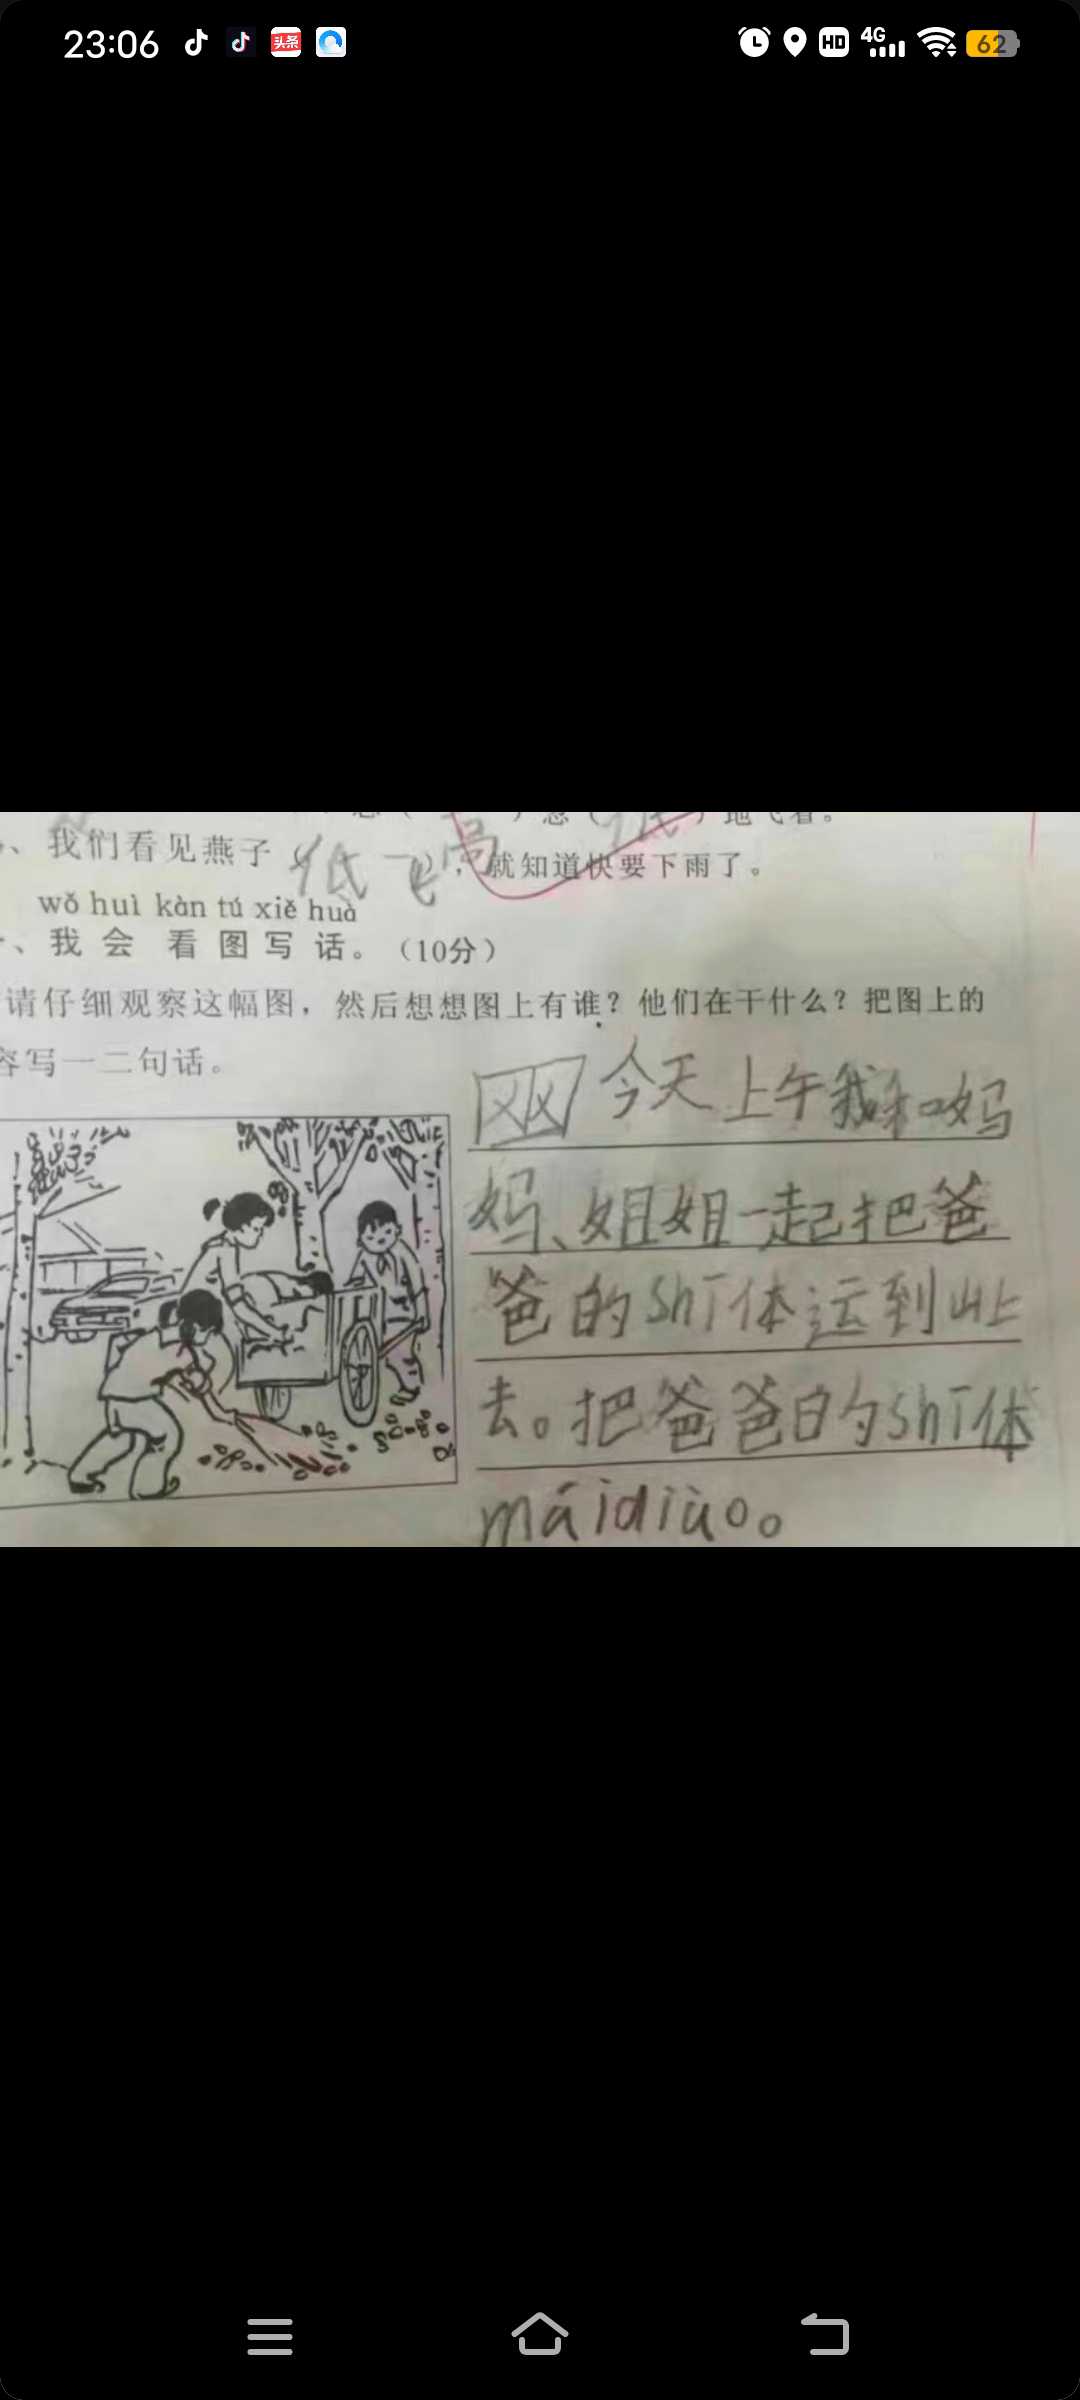 23:06
头条
HD
4G
62
、我们看见燕子(低飞),就知道快要下雨了。
wǒ huì kàn tú xiě huà
、我会看图写话。(10分)
请仔细观察这幅图,然后想想图上有谁?他们在干什么?把图上的
容写一二句话。
今天上午我和妈
妈、姐姐一起把爸
爸的shī体运到山上
去。把爸爸的shī体
máidiào。